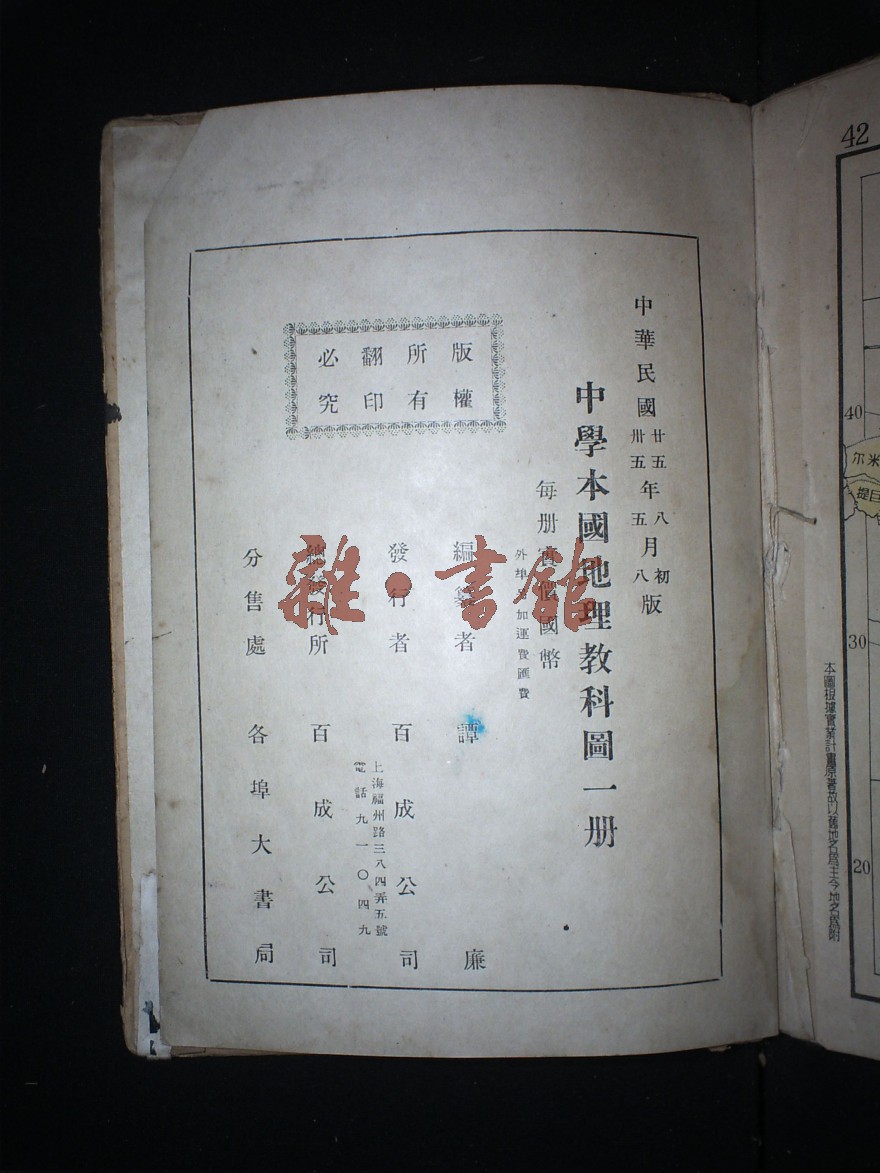 中華民國廿五年八月初版
卅五五八
中學本國地理教科圖一册
每册實價國幣
外埠 加運費匯費
版權
所有
翻印
必究
編纂者 譚廉
發行者 百成公司
上海福州路三八四弄五號
電話九一〇四九
總發行所 百成公司
分售處 各埠大書局
雜·書館
42
40
30
20
尔米
提目
本圖根據實業計畫原著故以舊地名爲主今地名爲附